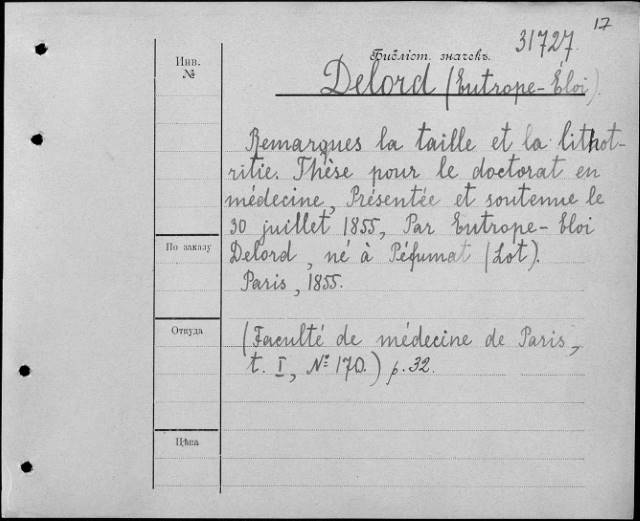 17
31727
Библіот. значекъ.
Инв.
№
Delord (Eutrope-Éloi).
Remarques la taille et la lithot-
ritie. Thèse pour le doctorat en
médecine, Présentée et soutenue le
30 juillet 1855, Par Eutrope-Eloi
По заказу
Delord, né à Péfumat (Lot).
Paris, 1855.
Откуда
(Faculté de médecine de Paris,
t. I, № 170.) p. 32.
Цѣна